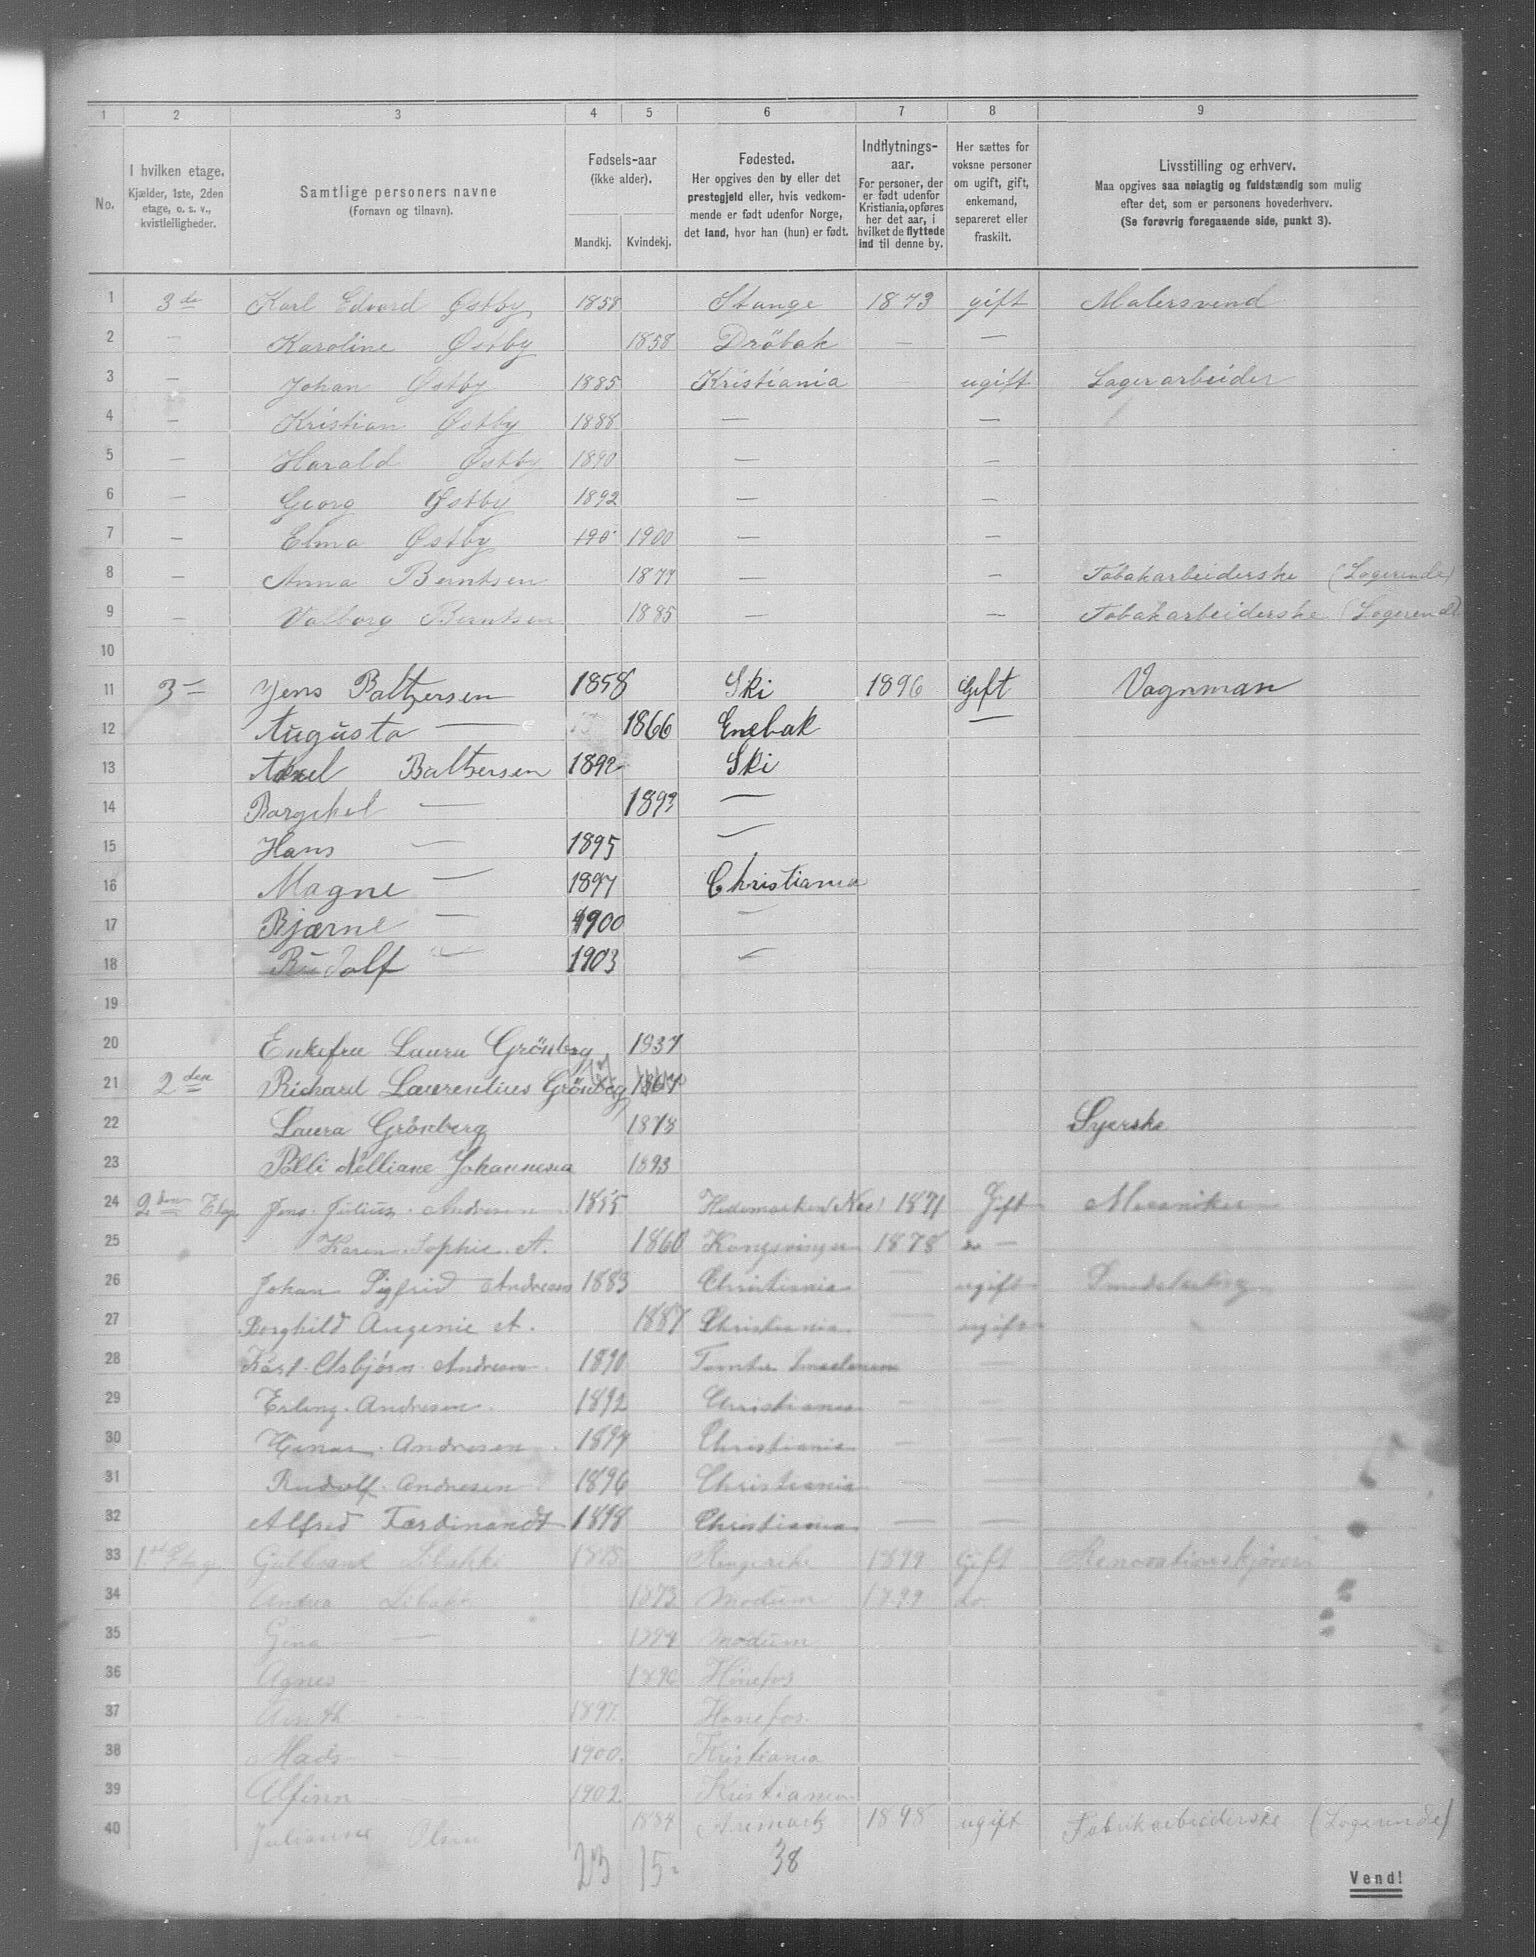 1 2 3 4 5 6 7 8 9
No.
I hvilken etage.
Kjælder, 1ste, 2den
etage, o. s. v.,
kvistleiligheder.
Samtlige personers navne
(Fornavn og tilnavn).
Fødsels-aar
(ikke alder).
Mandkj. Kvindekj.
Fødested.
Her opgives den by eller det
prestegjeld eller, hvis vedkom-
mende er født udenfor Norge,
det land, hvor han (hun) er født.
Indflytnings-
aar.
For personer, der
er født udenfor
Kristiania, opføres
her det aar, i
hvilket de flyttede
ind til denne by.
Her sættes for
voksne personer
om ugift, gift,
enkemand,
separeret eller
fraskilt.
Livsstilling og erhverv.
Maa opgives saa nøiagtig og fuldstændig som mulig
efter det, som er personens hovederhverv.
(Se forøvrig foregaaende side, punkt 3).
1 3de Karl Edvard Østby 1858 Stange 1873 gift Malersvend
2 — Karoline Østby 1858 Drøbak — —
3 — Johan Østby 1885 Kristiania ugift Lagerarbeider
4 — Kristian Østby 1888 — —
5 — Harald Østby 1890 — —
6 — Georg Østby 1892 — —
7 — Elma Østby 190 1900 — —
8 — Anna Berntsen 1877 — — Tobakarbeiderske (Logerende)
9 — Valborg Berntsen 1885 — — Tobakarbeiderske (Logerende)
10
11 3 — Jens Baltzersen 1858 Ski 1896 Gift Vognman
12 Augusta — 1866 Enebak —
13 Axel Baltzersen 1892 Ski
14 — 1893 —
15 Hans — 1895 —
16 Magne — 1897 Christiania
17 Bjarne — 1900 —
18 Rudolf — 1903 —
19
20 Enkefru Laura Grönberg 1837
21 2den Richard Laurentius Grönberg 1867
22 Laura Grönberg 1878 Syerske
23 Palli Nelliane Johannesen 1893
24 2den Etag Jens Julius Andresen 1855 Hedemarken (Nes) 1871 Gift
25 Karen Sophie A. 1860 Kongsvinger 1878 do —
26 Johan Sigfrid Andresen 1883 Christiania — ugift
27 Borghild Augenie A. 1887 Christiania — ugift
28 Karl Asbjörn Andresen 1890 —
29 Erling Andresen 1892 Christiania — —
30 Andresen 1894 Christiania — —
31 Rudolf Andresen 1896 Christiania — —
32 Alfred Ferdinandt 1898 Christiania — —
33 1ste Etag Gulbrand Libakke 1875 Ringerike 1899 Gift Renovationskjører
34 Andrea Libakk 1873 Modum 1899 do.
35 Gina — 1894 Modum
36 Agnes — 1896 Hönefos
37 — 1897 Hønefos
38 Mads — 1900 Kristiania
39 Alfinn — 1902 Kristiania
40 Julianne Olsen 1884 Aremark 1898 ugift Fabrikarbeiderske (Logerende)
23 15 38
Vend!